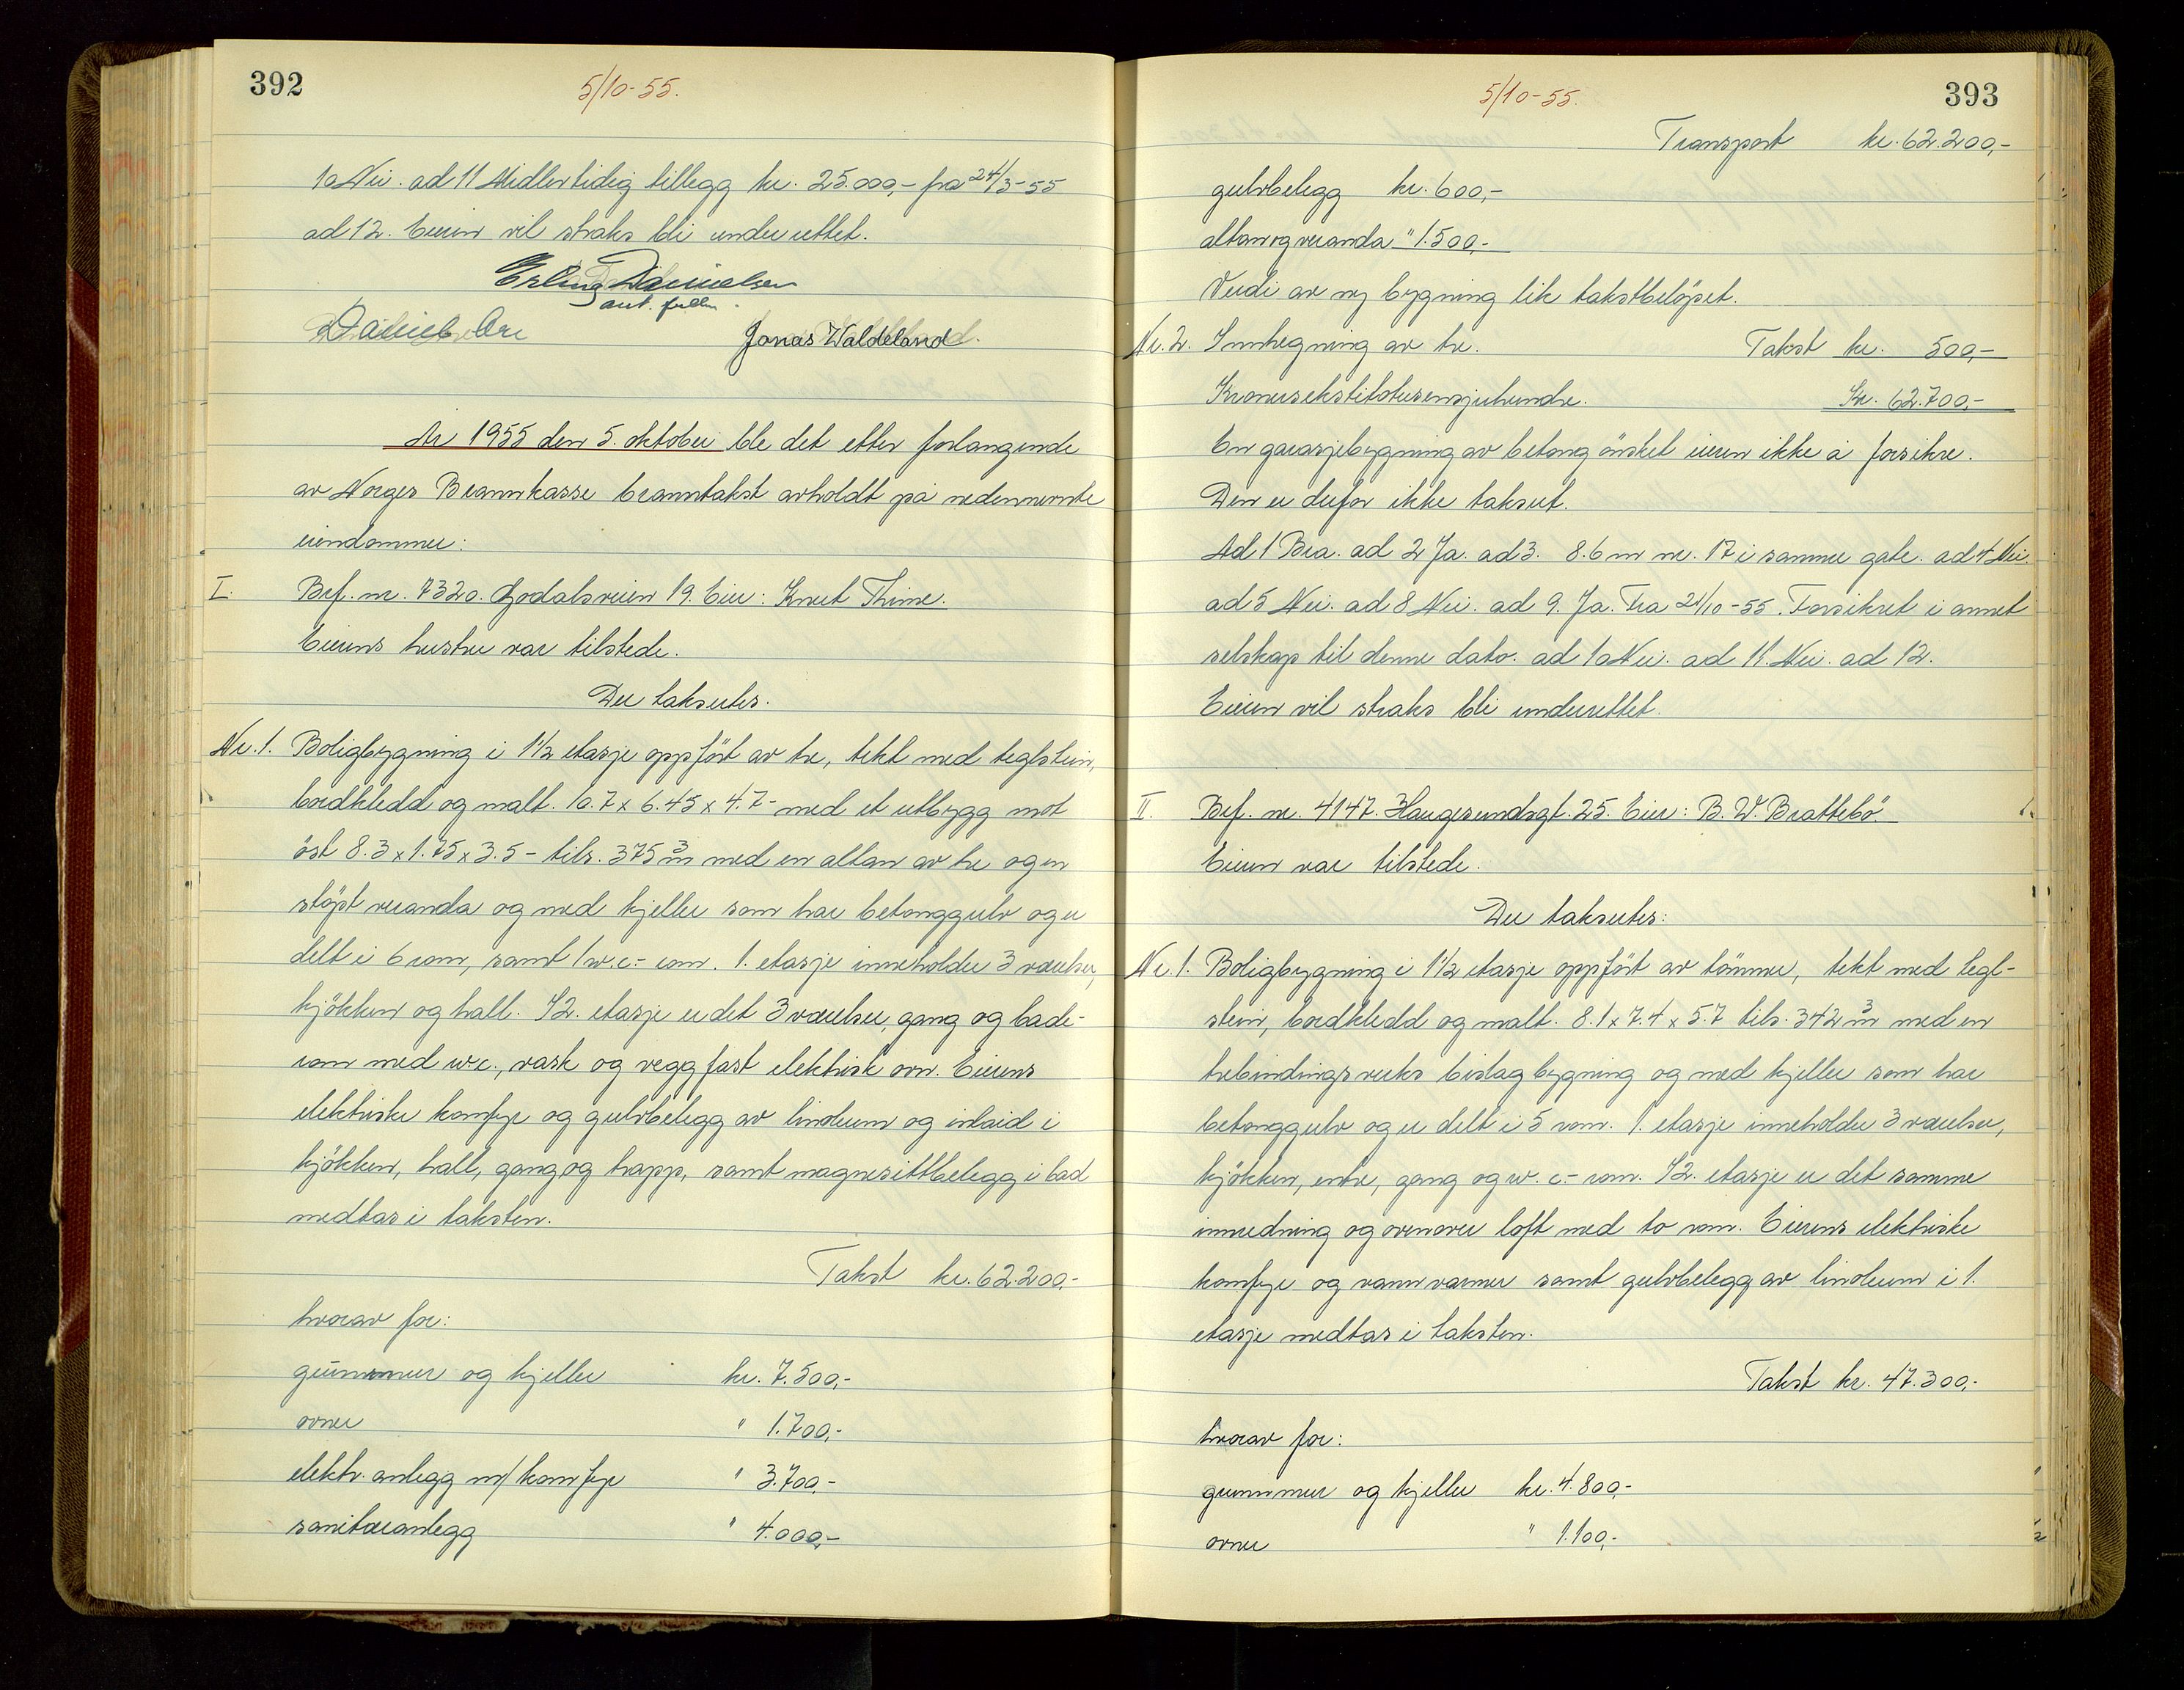 392
5/10-55.
10 Nei. ad 11 Midlertidig tillegg kr. 25.000,- fra 24/3-55
ad 12. Eieren vil straks bli underrettet.
Erling Danielsen
aut. fullm.
Jonas Waldeland.
År 1955 den 5. oktober ble det etter forlangende
av Norges Brannkasse branntakst avholdt på nedennevnte
eiendommer:
I. Bef. nr. 7320. Godalsveien 19. Eier: Knut Time.
Eierens hustru var tilstede.
Der takseres.
Nr. 1. Boligbygning i 1½ etasje oppfört av tre, tekt med teglstein,
bordkledd og malt. 10.7 x 6.45 x 4.7 - med et utbygg mot
öst 8.3 x 1.75 x 3.5 - tils. 375 m³ med en altan av tre og en
stöpt veranda og med kjeller som har betonggulv og er
delt i 6 rom, samt 1 w.c.- rom. 1. etasje inneholder 3 værelser,
kjökken og hall. I 2. etasje er det 3 værelser, gang og bade-
rom med w.c., vask og veggfast elektrisk ovn. Eierens
elektriske komfyr og gulvbelegg av linoleum og inlaid i
kjökken, hall, gang og trapp, samt magnesittbelegg i bad
medtas i taksten.
Takst kr. 62.200,-
hvorav for:
grunnmur og kjeller kr. 7.500,-
ovner " 1.700,-
elektr. anlegg m/ komfyr " 3.700,-
sanitæranlegg " 4.000,-
5/10-55.
393
Transport kr. 62.200,-
gulvbelegg kr. 600,-
altan og veranda " 1.500,-
Verdi av ny bygning lik takstbelöpet.
Nr. 2. Innhegning av tre. Takst kr. 500,-
Kronersekstitotusensjuhundre. Kr. 62.700,-
En garasjebygning av betong önsket eieren ikke å forsikre.
Den er derfor ikke taksert.
Ad 1 Bra. ad 2 Ja. ad 3. 8.6 m nr. 17 i samme gate. ad 4 Nei.
ad 5 Nei. ad 8 Nei. ad 9. Ja. Fra 21/10-55. Forsikret i annet
selskap til denne dato. ad 10 Nei. ad 11. Nei. ad 12.
Eieren vil straks bli underrettet.
II. Bef. nr. 4147. Haugesundsgt. 25. Eier: B. W. Brattebö
Eieren var tilstede.
Der takseres:
Nr. 1. Boligbygning i 1½ etasje oppfört av tömmer, tekt med tegl-
stein, bordkledd og malt. 8.1 x 7.4 x 5.7 tils. 342 m³ med en
trebindingsverks bislagbygning og med kjeller som har
betonggulv og er delt i 5 rom. 1. etasje inneholder 3 værelser,
kjökken, entre, gang og w. c.- rom. I 2. etasje er det samme
innredning og ovenover loft med to rom. Eierens elektriske
komfyr og vannvarmer samt gulvbelegg av linoleum i 1.
etasje medtas i taksten.
Takst kr. 47.300,-
hvorav for:
grunnmur og kjeller kr. 4.800,-
ovner " 1.100,-